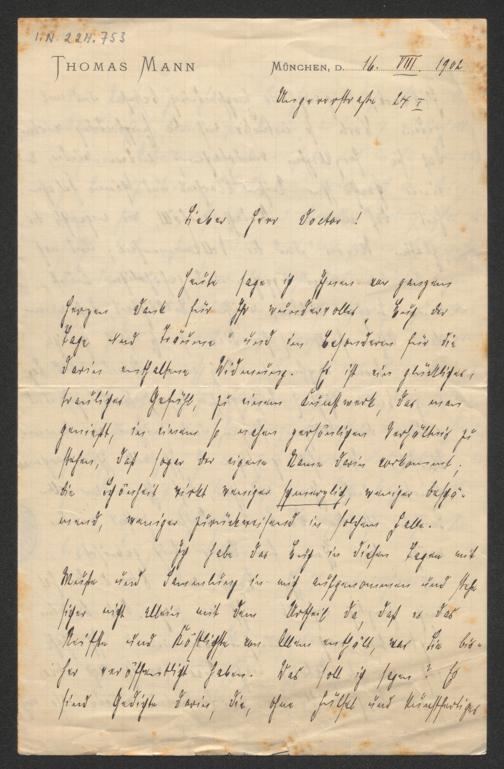 I.N. 224.753
THOMAS MANN
MÜNCHEN, D. 16. VIII. 1902
Ungererstraße 24 I
Lieber Herr Doctor!
Heute sage ich Ihnen von ganzem
Herzen Dank für Ihr wundervolles „Buch der
Tage und Träume“ und im Besonderen für die
darin enthaltene Widmung. Es ist ein glückliches,
trauliches Gefühl, zu einem Kunstwerk, das man
genießt, in einem so nahen persönlichen Verhältnis zu
stehen, daß sogar der eigene Name darin vorkommt;
die Schönheit wirkt weniger schmerzlich, weniger beschä-
mend, weniger zurückweisend in solchem Falle.
Ich habe das Buch in diesen Tagen mit
Muße und Sammlung in mich aufgenommen und stehe
sicher nicht allein mit dem Urtheil da, daß es das
Reifste und Köstlichste von Allem enthält, was Sie bis-
her veröffentlicht haben. Was soll ich sagen? Es
sind Gedichte darin, die, ohne und